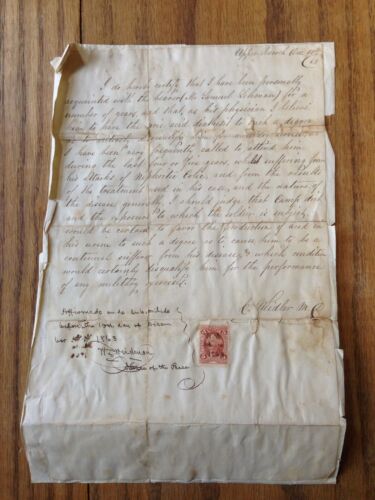 Dec 10th
/63
I do hereby certify that I have been personally
acquainted with the bearer, Mr Samuel Lehman, for a
number of years, and that, as his physician, I believe
him to have the and disease to such a degree
I have been very frequently called to attend him
during the last four or five years, whilst suffering from
his attacks of Nephritic Colic, and from the results
of the treatment and in his case, and the nature of
the disease generally, I should judge that Camp diet
and the exposure to which the soldier is subject
would be certain to favor the production of and in
his worse to such a degree as to cause him to be a
continual sufferer from his disease, & which condition
would certainly disqualify him for the performance
of any military service.
C. Weidler M.D.
Affirmed and subscribed
before the 10th day of Decem
ber 1863
Justice of the Peace